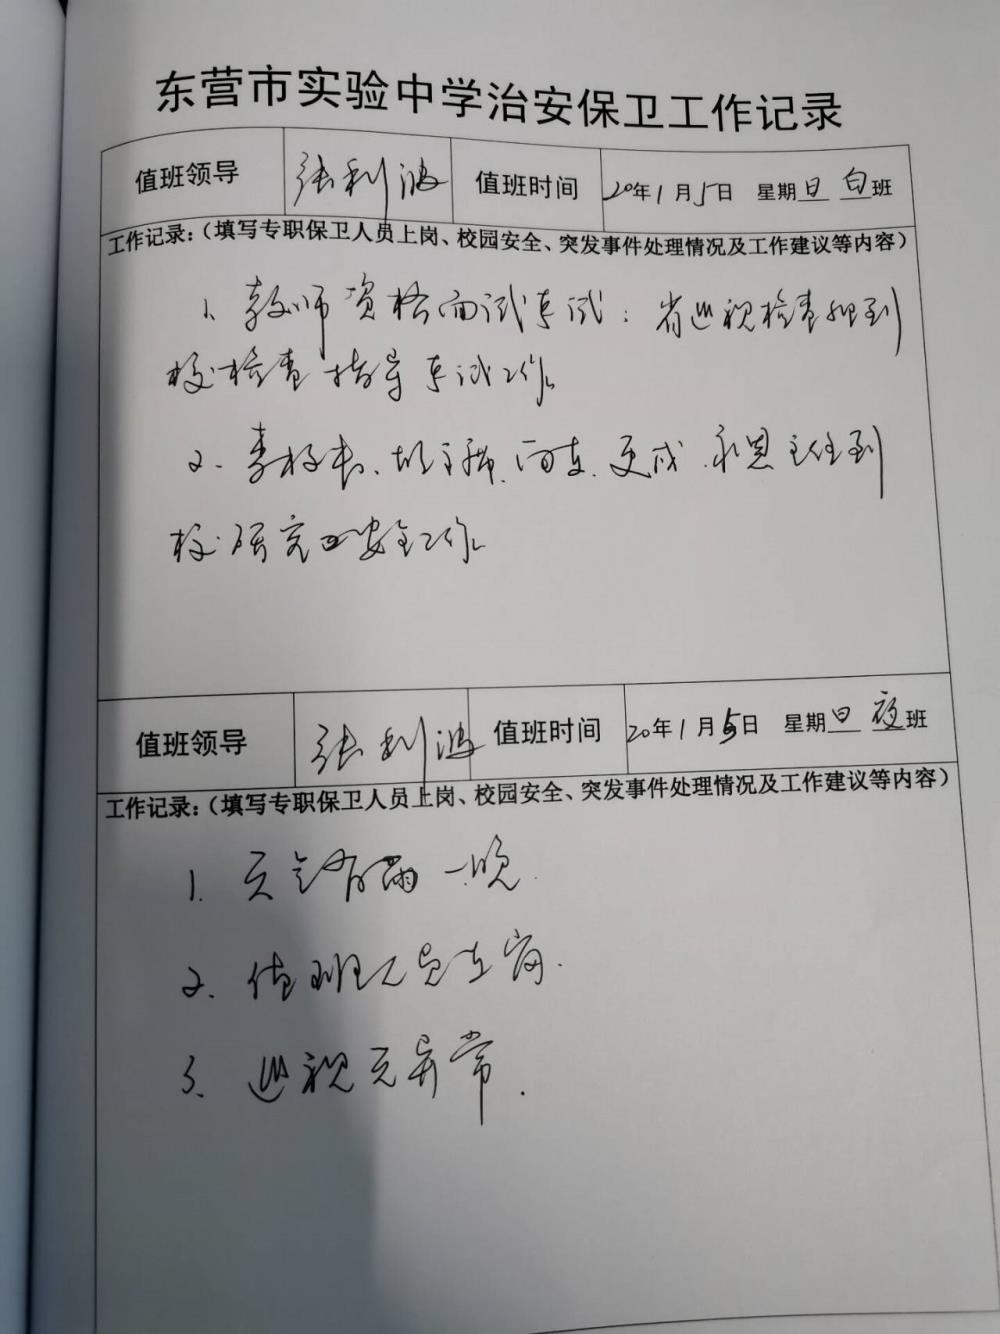 东营市实验中学治安保卫工作记录
值班领导 张利波 值班时间 20年1月5日 星期日 白班
工作记录:(填写专职保卫人员上岗、校园安全、突发事件处理情况及工作建议等内容)
1、教师资格面试考试:省巡视检查组到
校检查指导考试工作。
2、李校长、主任到
校研究安全工作。
值班领导 张利波 值班时间 20年1月5日 星期日 夜班
工作记录:(填写专职保卫人员上岗、校园安全、突发事件处理情况及工作建议等内容)
1. 天气有雨一晚.
2、值班人员在岗.
3、巡视无异常.